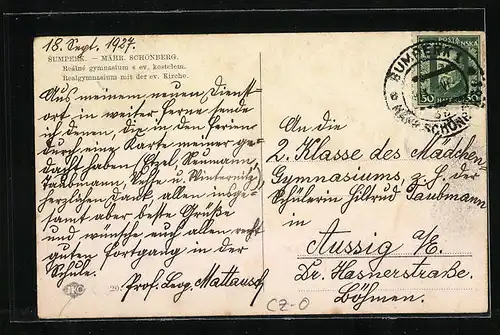 18. Sept. 1927.
ŠUMPERK. — MÄHR. SCHÖNBERG.
Reálné gymnasium s ev. kostelem.
Realgymnasium mit der ev. Kirche.
Aus meinem neuen Dienst-
ort in weiter Ferne sende
ich denen, die in den Ferien
durch eine Karte meiner ge-
dacht haben (Etzel, Neumann,
Taubmann, und Winternitz)
herzlichen Dank, allen insge-
samt aber beste Grüße
und wünsche euch allen recht
guten Fortgang in der
Schule.
Prof. Leop. Mattausch
An die
2. Klasse des Mädchen-
Gymnasiums, z. H. der
Schülerin Hiltrud Taubmann
in
Aussig a/E.
Dr. Hasnerstraße.
Böhmen.
ŠUMPERK 1
MÄHR. SCHÖNB
POŠTA
50 50
20
CZ-O